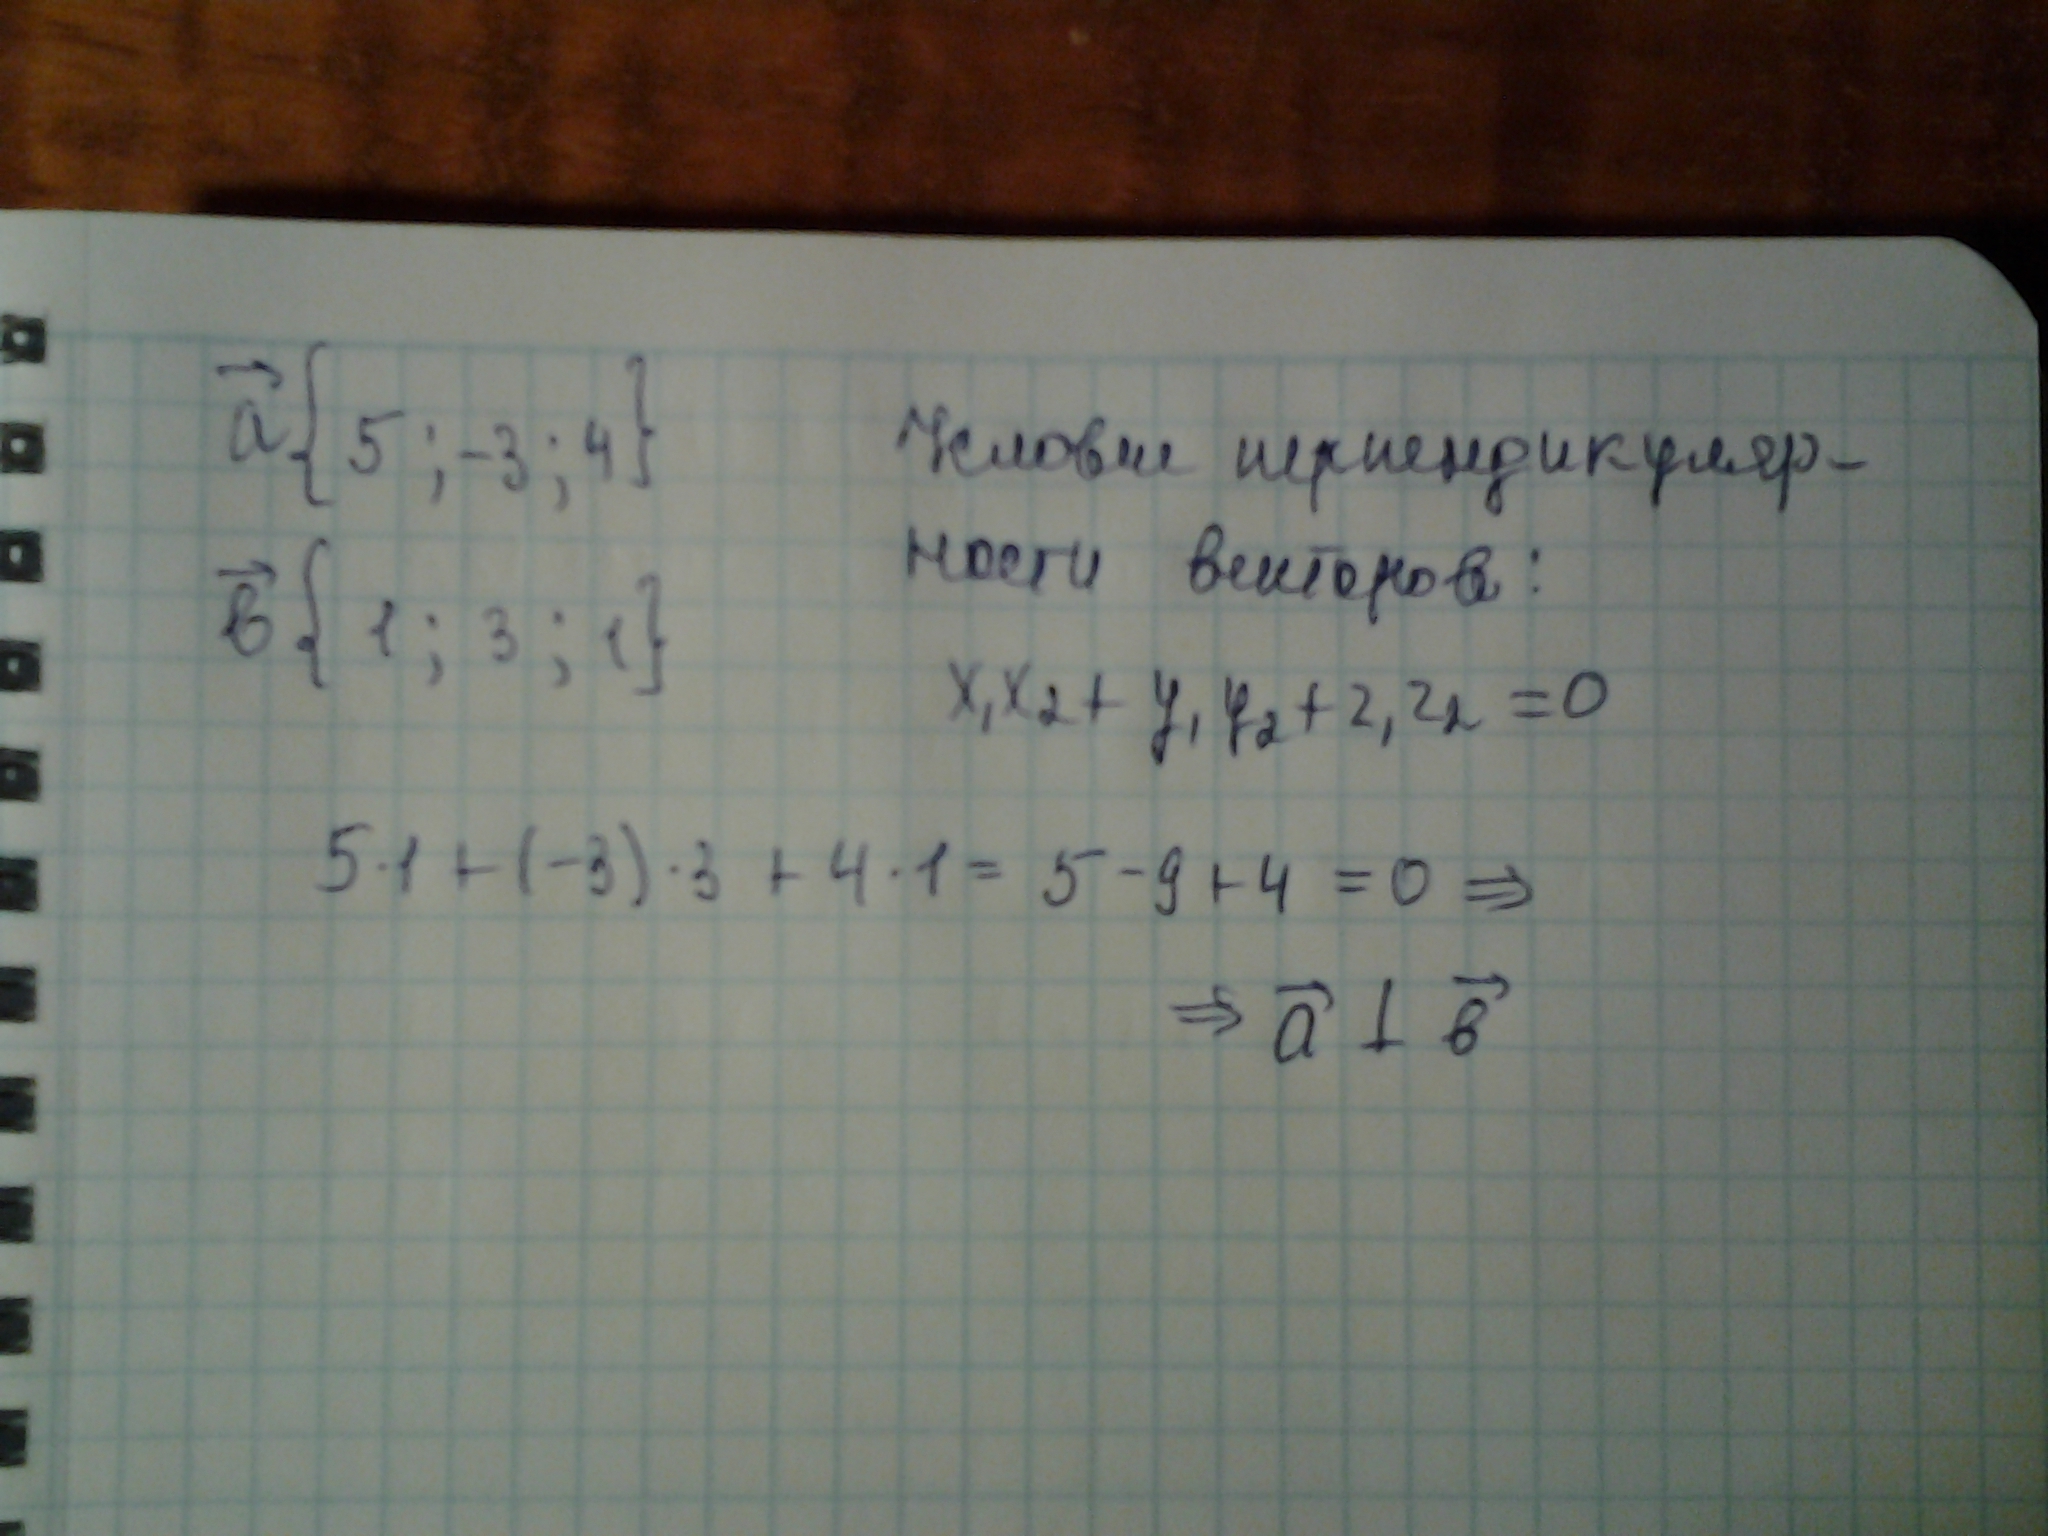 a⃗ { 5 ; -3 ; 4 }
в⃗ { 1 ; 3 ; 1 }
Условие перпендикуляр-
ности векторов:
x₁x₂ + y₁y₂ + z₁z₂ = 0
5·1 + (-3)·3 + 4·1 = 5 - 9 + 4 = 0 ⇒
⇒ a⃗ ⊥ в⃗